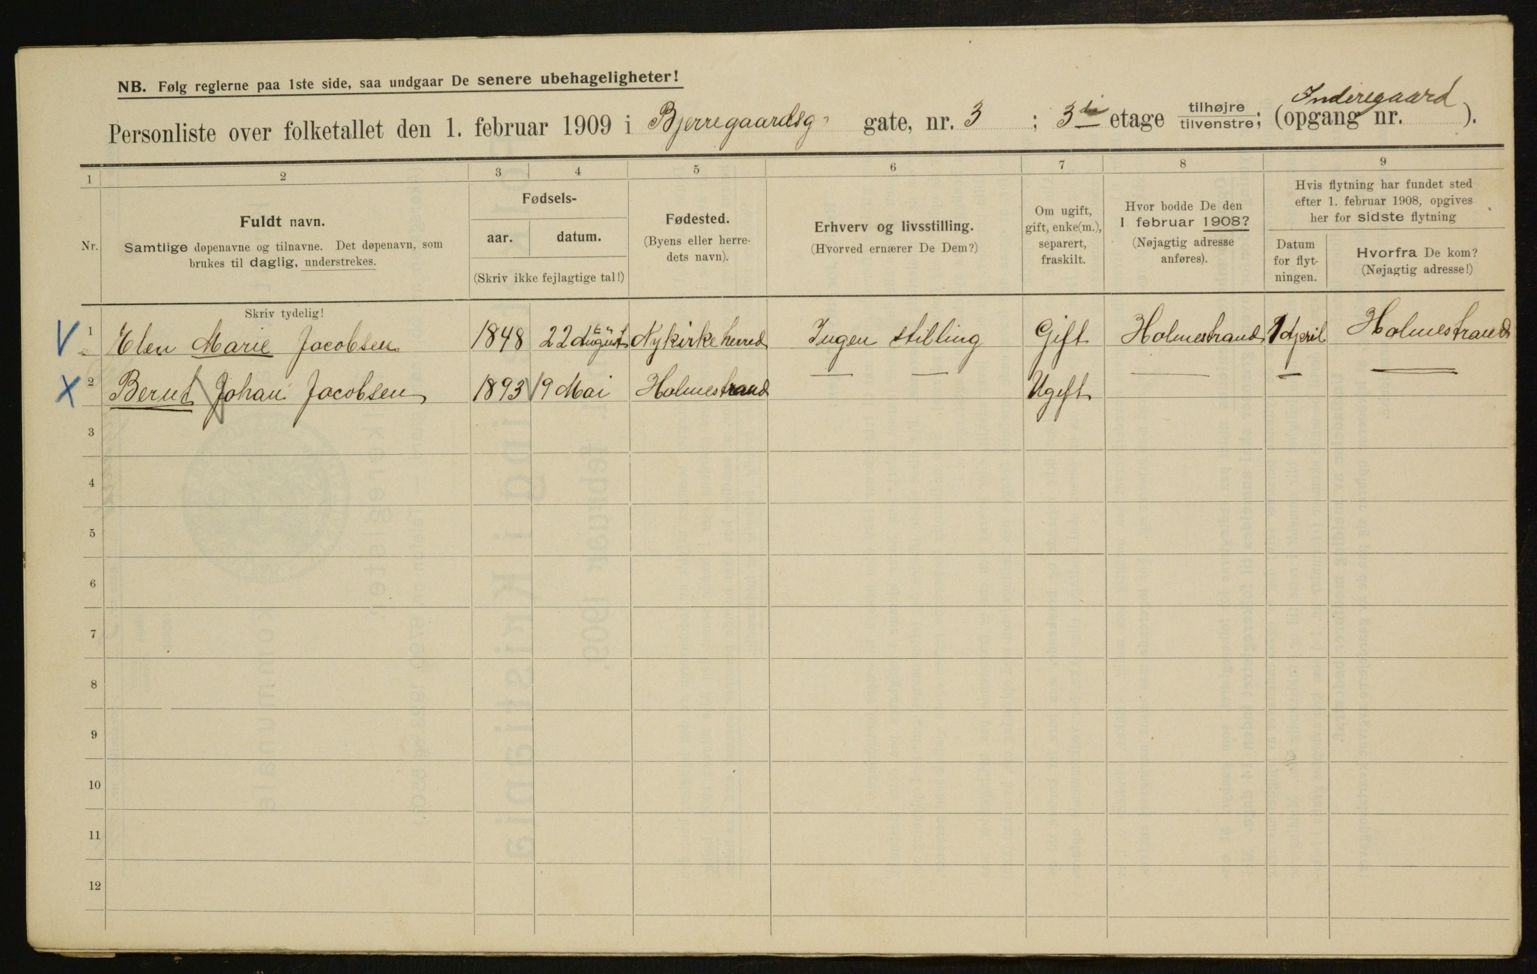 NB. Følg reglerne paa 1ste side, saa undgaar De senere ubehageligheter!
Personliste over folketallet den 1. februar 1909 i Bjerregaardsg. gate, nr. 3 ; 3die etage tilhøjre tilvenstre; (opgang nr. Inderegaard ).
1 2 3 4 5 6 7 8 9
Nr.
Fuldt navn.
Samtlige døpenavne og tilnavne. Det døpenavn, som
brukes til daglig, understrekes.
Fødsels-
aar. datum.
(Skriv ikke fejlagtige tal!)
Fødested.
(Byens eller herre-
dets navn).
Erhverv og livsstilling.
(Hvorved ernærer De Dem?)
Om ugift,
gift, enke(m.),
separert,
fraskilt.
Hvor bodde De den
1 februar 1908?
(Nøjagtig adresse
anføres).
Hvis flytning har fundet sted
efter 1. februar 1908, opgives
her for sidste flytning
Datum
for flyt-
ningen.
Hvorfra De kom?
(Nøjagtig adresse!)
Skriv tydelig!
1 Elen Marie Jacobsen 1848 22 August Nykirke herred Ingen stilling Gift Holmestrand 1 April Holmestrand
2 Bernt Johan Jacobsen 1893 19 Mai Holmestrand — — Ugift — — —
3
4
5
6
7
8
9
10
11
12